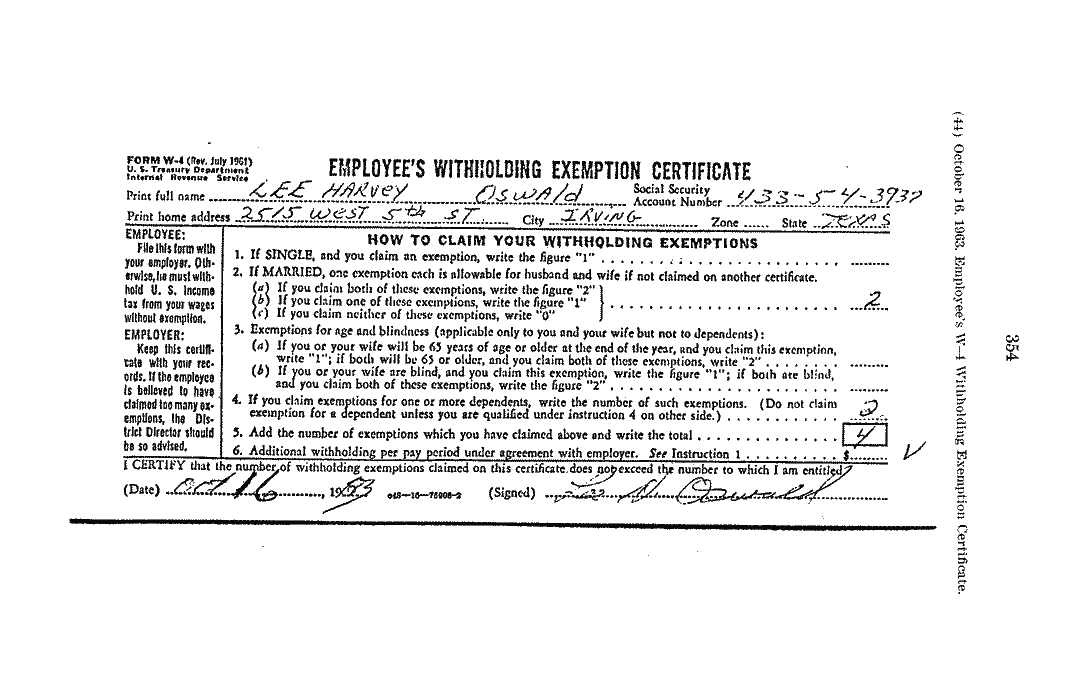 FORM W-4 (Rev. July 1961)
U. S. Treasury Department
Internal Revenue Service
EMPLOYEE'S WITHHOLDING EXEMPTION CERTIFICATE
Print full name LEE HARVEY OSWALD Social Security Account Number 433-54-3937
Print home address 2515 WEST 5th ST City IRVING Zone ...... State TEXAS
EMPLOYEE:
File this form with
your employer. Oth-
erwise, he must with-
hold U. S. Income
tax from your wages
without exemption.
EMPLOYER:
Keep this certifi-
cate with your rec-
ords. If the employee
is believed to have
claimed too many ex-
emptions, the Dis-
trict Director should
be so advised.
HOW TO CLAIM YOUR WITHHOLDING EXEMPTIONS
1. If SINGLE, and you claim an exemption, write the figure "1"
2. If MARRIED, one exemption each is allowable for husband and wife if not claimed on another certificate.
(a) If you claim both of these exemptions, write the figure "2"
(b) If you claim one of these exemptions, write the figure "1"
(c) If you claim neither of these exemptions, write "0"
2
3. Exemptions for age and blindness (applicable only to you and your wife but not to dependents):
(a) If you or your wife will be 65 years of age or older at the end of the year, and you claim this exemption,
write "1"; if both will be 65 or older, and you claim both of these exemptions, write "2"
(b) If you or your wife are blind, and you claim this exemption, write the figure "1"; if both are blind,
and you claim both of these exemptions, write the figure "2"
4. If you claim exemptions for one or more dependents, write the number of such exemptions. (Do not claim
exemption for a dependent unless you are qualified under instruction 4 on other side.) 2
5. Add the number of exemptions which you have claimed above and write the total 4
6. Additional withholding per pay period under agreement with employer. See Instruction 1 $
I CERTIFY that the number of withholding exemptions claimed on this certificate does not exceed the number to which I am entitled
(Date) Oct 16, 1963 (Signed) Lee H Oswald
(44) October 16, 1963, Employee's W-4 Withholding Exemption Certificate.
354